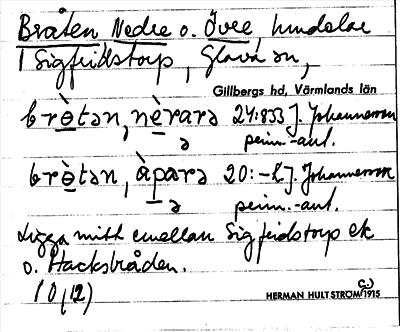 Bråten Nedre o. Övre, hemdelar
i Sigfridstorp, Glava sn,
Gillbergs hd, Värmlands län
brɵ̀tən, nèrarə 24:833 J. Johannesson
ə pers.-ant.
brɵ̀tən, àparə 20:- J. Johannesson
ə pers.-ant.
Ligga mitt emellan Sigfridstorp ek
o. Hacksbråden.
HERMAN HULTSTRÖM 1915